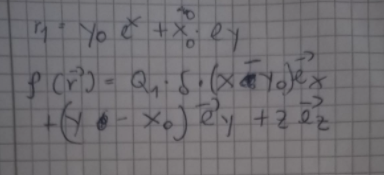 r₁ = y₀ e^x + x₀ · e y
ρ(r⃗) = Q₁ · δ · (x - y₀) e⃗x
+ (y - x₀) e⃗y + z e⃗z